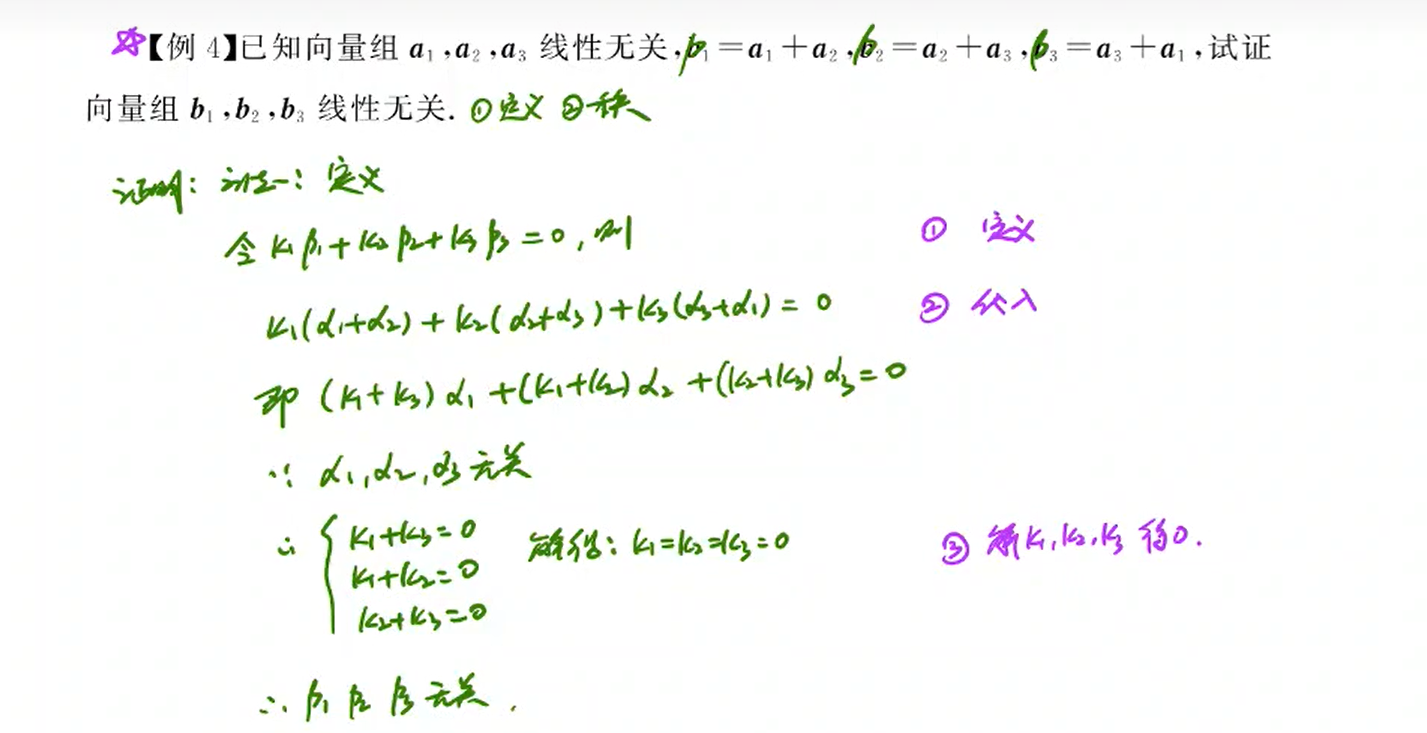 【例 4】已知向量组 a₁,a₂,a₃ 线性无关,β₁=a₁+a₂,β₂=a₂+a₃,β₃=a₃+a₁,试证
向量组 b₁,b₂,b₃ 线性无关. ①定义 ②秩
证明: 法一: 定义
令 k₁β₁+k₂β₂+k₃β₃=0, 则 ① 定义
k₁(α₁+α₂)+k₂(α₂+α₃)+k₃(α₃+α₁)=0 ② 代入
即 (k₁+k₃)α₁+(k₁+k₂)α₂+(k₂+k₃)α₃=0
∵ α₁,α₂,α₃无关
∴ { k₁+k₃=0 解得: k₁=k₂=k₃=0 ③ 解k₁,k₂,k₃ 得0.
k₁+k₂=0
k₂+k₃=0
∴ β₁ β₂ β₃ 无关.